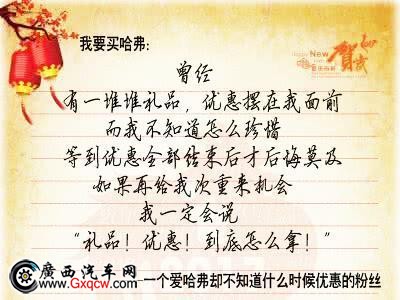 我要买哈弗:
Happy New
贺
曾经
有一堆堆礼品，优惠摆在我面前
而我不知道怎么珍惜
等到优惠全部结束后才后悔莫及
如果再给我次重来机会
我一定会说
“礼品！优惠！到底怎么拿！”
廣西汽车网
www.Gxqcw.com
一个爱哈弗却不知道什么时候优惠的粉丝